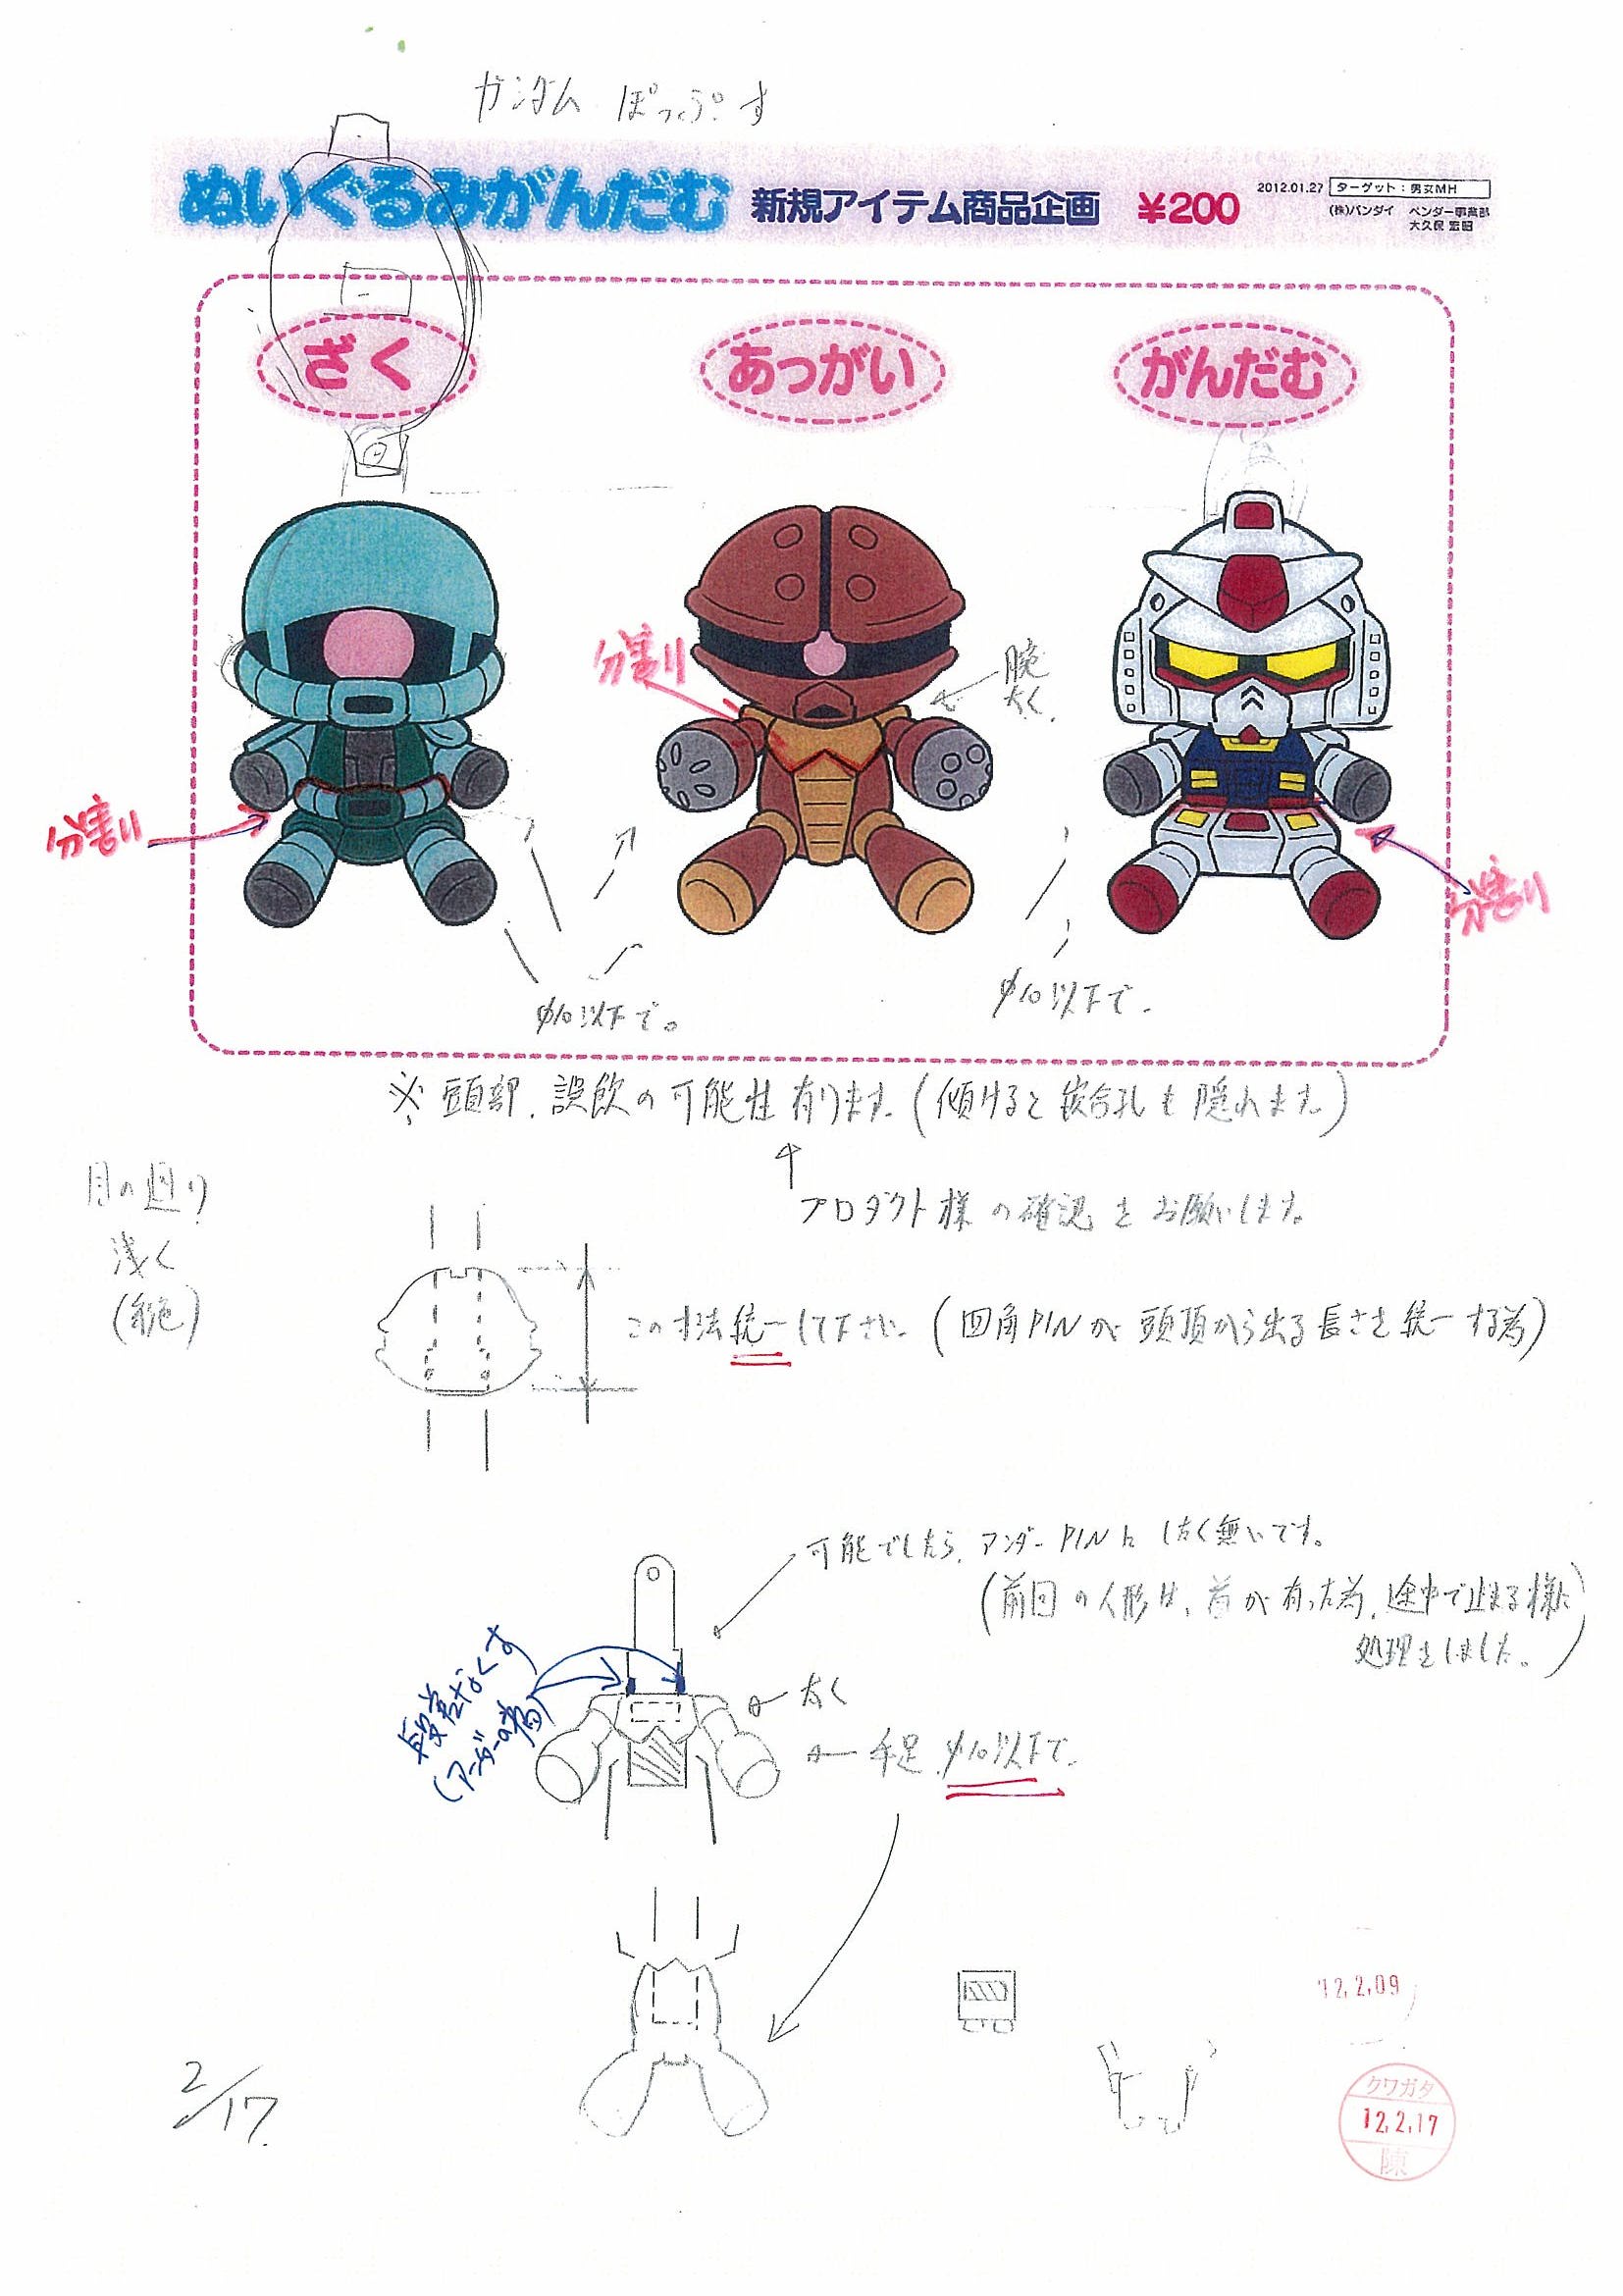 ガンダム ぽっぷす
ぬいぐるみがんだむ 新規アイテム商品企画 ¥200
2012.01.27 ターゲット:男女MH
(株)バンダイ ベンダー事業部
大久保 宏昭
ざく
あっがい
がんだむ
分割り
腕
太く
分割り
分割り
φ10以下で。
φ10以下で.
※頭部、誤飲の可能性有ります。(傾けると嵌合孔も隠れます。)
プロダクト様の確認をお願いします。
目の廻り
浅く
この寸法統一して下さい。(四角PINが頭頂から出る長さを統一する為)
可能でしたら、アンダーPINにしたく無いです。
(前回の人形は、首が有った為、途中で止まる様に
処理をしました。)
段差なくす
太く
手足 φ10以下で.
12.2.09
2/17.
クワガタ
12.2.17
陳